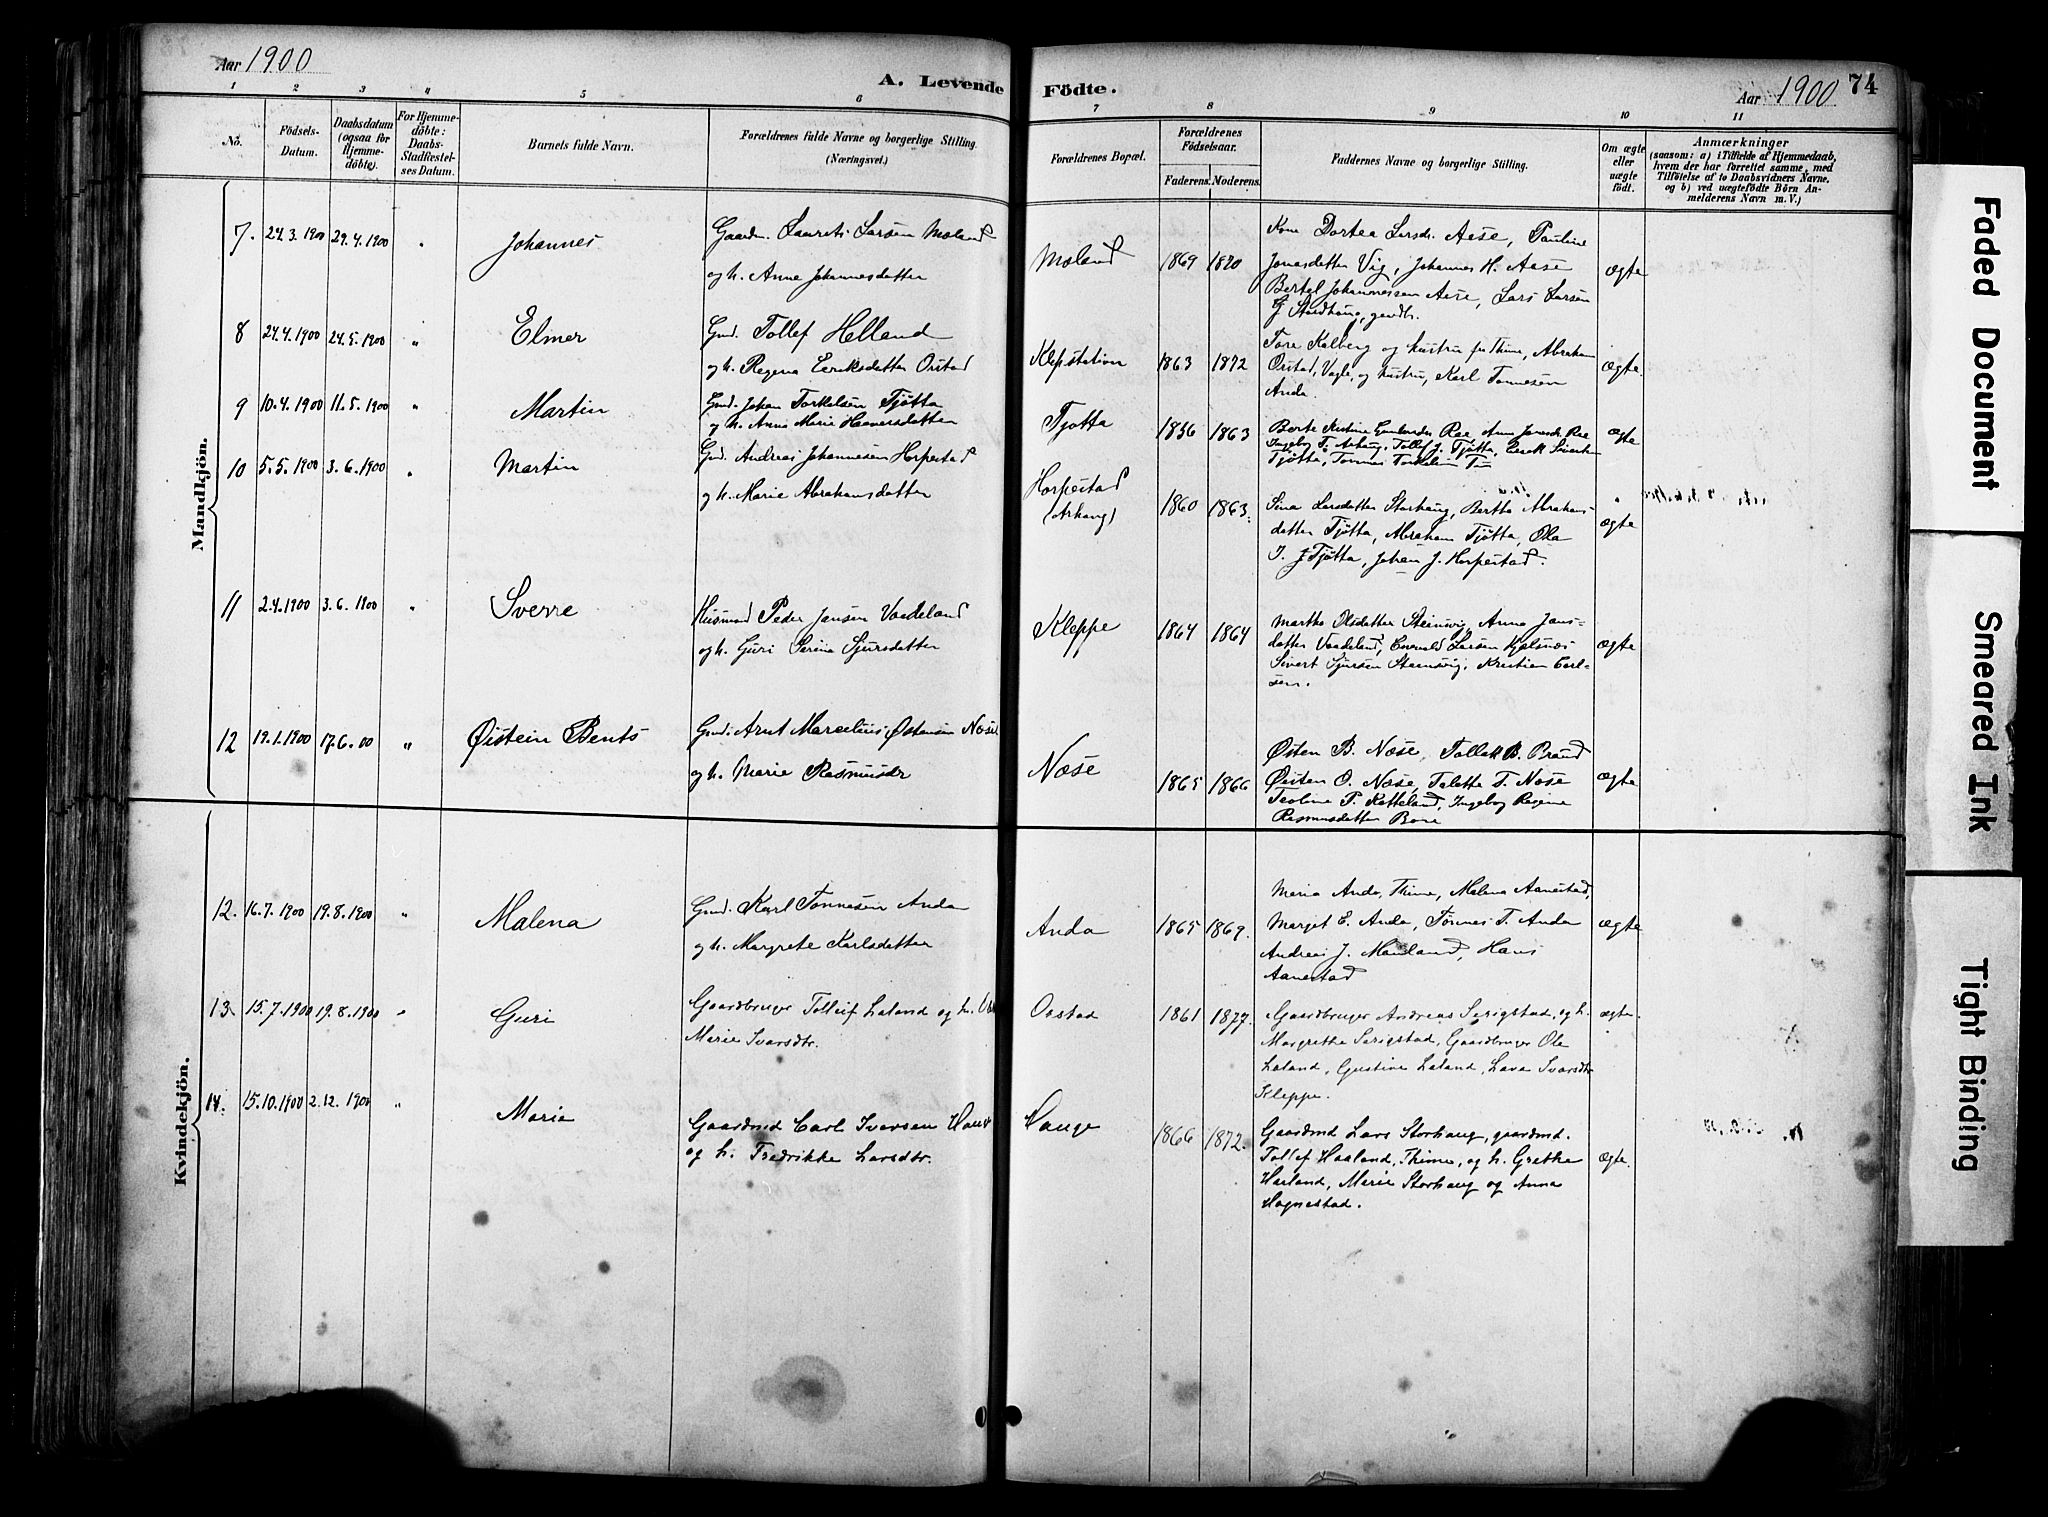 Aar 1900
A. Levende Födte.
Aar 1900
74
1 2 3 4 5 6 7 8 9 10 11
No.
Födsels-Datum.
Daabsdatum (ogsaa for Hjemmedöbte).
For Hjemmedöbte: Daabs-Stadfæstelses Datum.
Barnets fulde Navn.
Forældrenes fulde Navne og borgerlige Stilling. (Næringsvei.)
Forældrenes Bopæl.
Forældrenes Födselsaar.
Faderens. Moderens.
Faddernes Navne og borgerlige Stilling.
Om ægte eller uægte födt.
Anmærkninger
(saasom: a) i Tilfælde af Hjemmedaab, hvem der har forrettet samme, med Tilföielse af to Daabsvidners Navne, og b) ved uægtefödte Börn Anmelderens Navn m. V.)
Mandkjön.
7. 24.3.1900 29.4.1900 " Johannes
Gaardm. Laurets Larsen Moland
og h. Anne Johannesdatter
Moland 1869 1870
Kone Dortea Larsdr. Aese, Pauline
Jonasdatter Vig, Johannes H. Aese
Bertel Johannessen Aese, Lars Larsen
ægte
8 24.4.1900 24.5.1900 " Elmer
Gmd. Tollef Helland
og h. Regina Eeriksdatter Orstad
Klepstation 1863 1872
Tore Kalberg og hustru fra Thime, Abraham
Orstad, Vagle, og hustru, Karl Tonnesen
Anda.
ægte.
9 10.4.1900 11.5.1900 " Martin
Gmd. Johan Torkelsen Tjøtta
og h. Anna Marie
Tjotta 1856 1863
Berte Kristine Rae, Anna Rae
Ingebog T. Arhaug, Tollef J. Tjøtta,
Tjøtta, Tonnes Torkelsen
ægte
10 5.5.1900 3.6.1900 " Martin
Gmd. Andreas Johannesen Horpestad
og h. Marie Abrahamsdatter
Horpestad
(Arhaug) 1860 1863.
Sina Larsdatter Storhaug, Bertha Abrahamsdatter Tjøtta, Abraham Tjøtta, Ola
I. J. Tjøtta, Johan J. Horpestad.
ægte
11 2.4.1900 3.6.1900 " Sverre
Husmand Peder Jansen Vaadeland
og h. Guri Serina Sjursdatter
Kleppe 1864 1864
Martha Olsdatter Steinsvig, Anna Jansdatter Vaadeland, Larsen
Sivert Sjursen Steinsvig, Kristian Carlsen.
ægte
12 19.1.1900 17.6.00 " Øistein Bents
Gmd. Arnt Marcelius Østensen Næse
og h. Marie Rasmusdr
Næse 1865 1866
Østen B. Næse, Tollak B. Braud
Øisten O. Næse, Talette T. Næse
Teoline P. Katteland, Ingebog Regine
Rasmusdatter Bore
ægte
Kvindekjön.
12. 16.7.1900 19.8.1900 " Malena
Gmd. Karl Tonnesen Anda
og h. Margrete Karlsdatter
Anda 1865 1869.
Maria Anda, Thime, Malena Aanestad,
Marget E. Anda, Tønnes T. Anda
Andreas J. Mauland, Hans
Aanestad
ægte
13. 15.7.1900 19.8.1900 " Guri
Gaardbruger Tolleif Laland og h.
Marie Ivarsdtr.
Orstad 1861 1877.
Gaardbruger Andreas Serigstad, og h.
Margrethe Serigstad, Gaardbruger Ole
Laland, Gustine Laland, Lava Ivarsdtr
Kleppe.
ægte.
14. 15.10.1900 2.12.1900 " Marie
Gaardmd Carl Ivarsen Hauge
og h. Fredrikke Larsdtr.
Hauge 1866 1872.
Gaardmd Lars Storhaug, gaardmd.
Tollef Haaland, Thime, og h. Grethe
Haaland, Marie Storhaug og Anna
Hognestad.
ægte.
Faded Document
Smeared Ink
Tight Binding